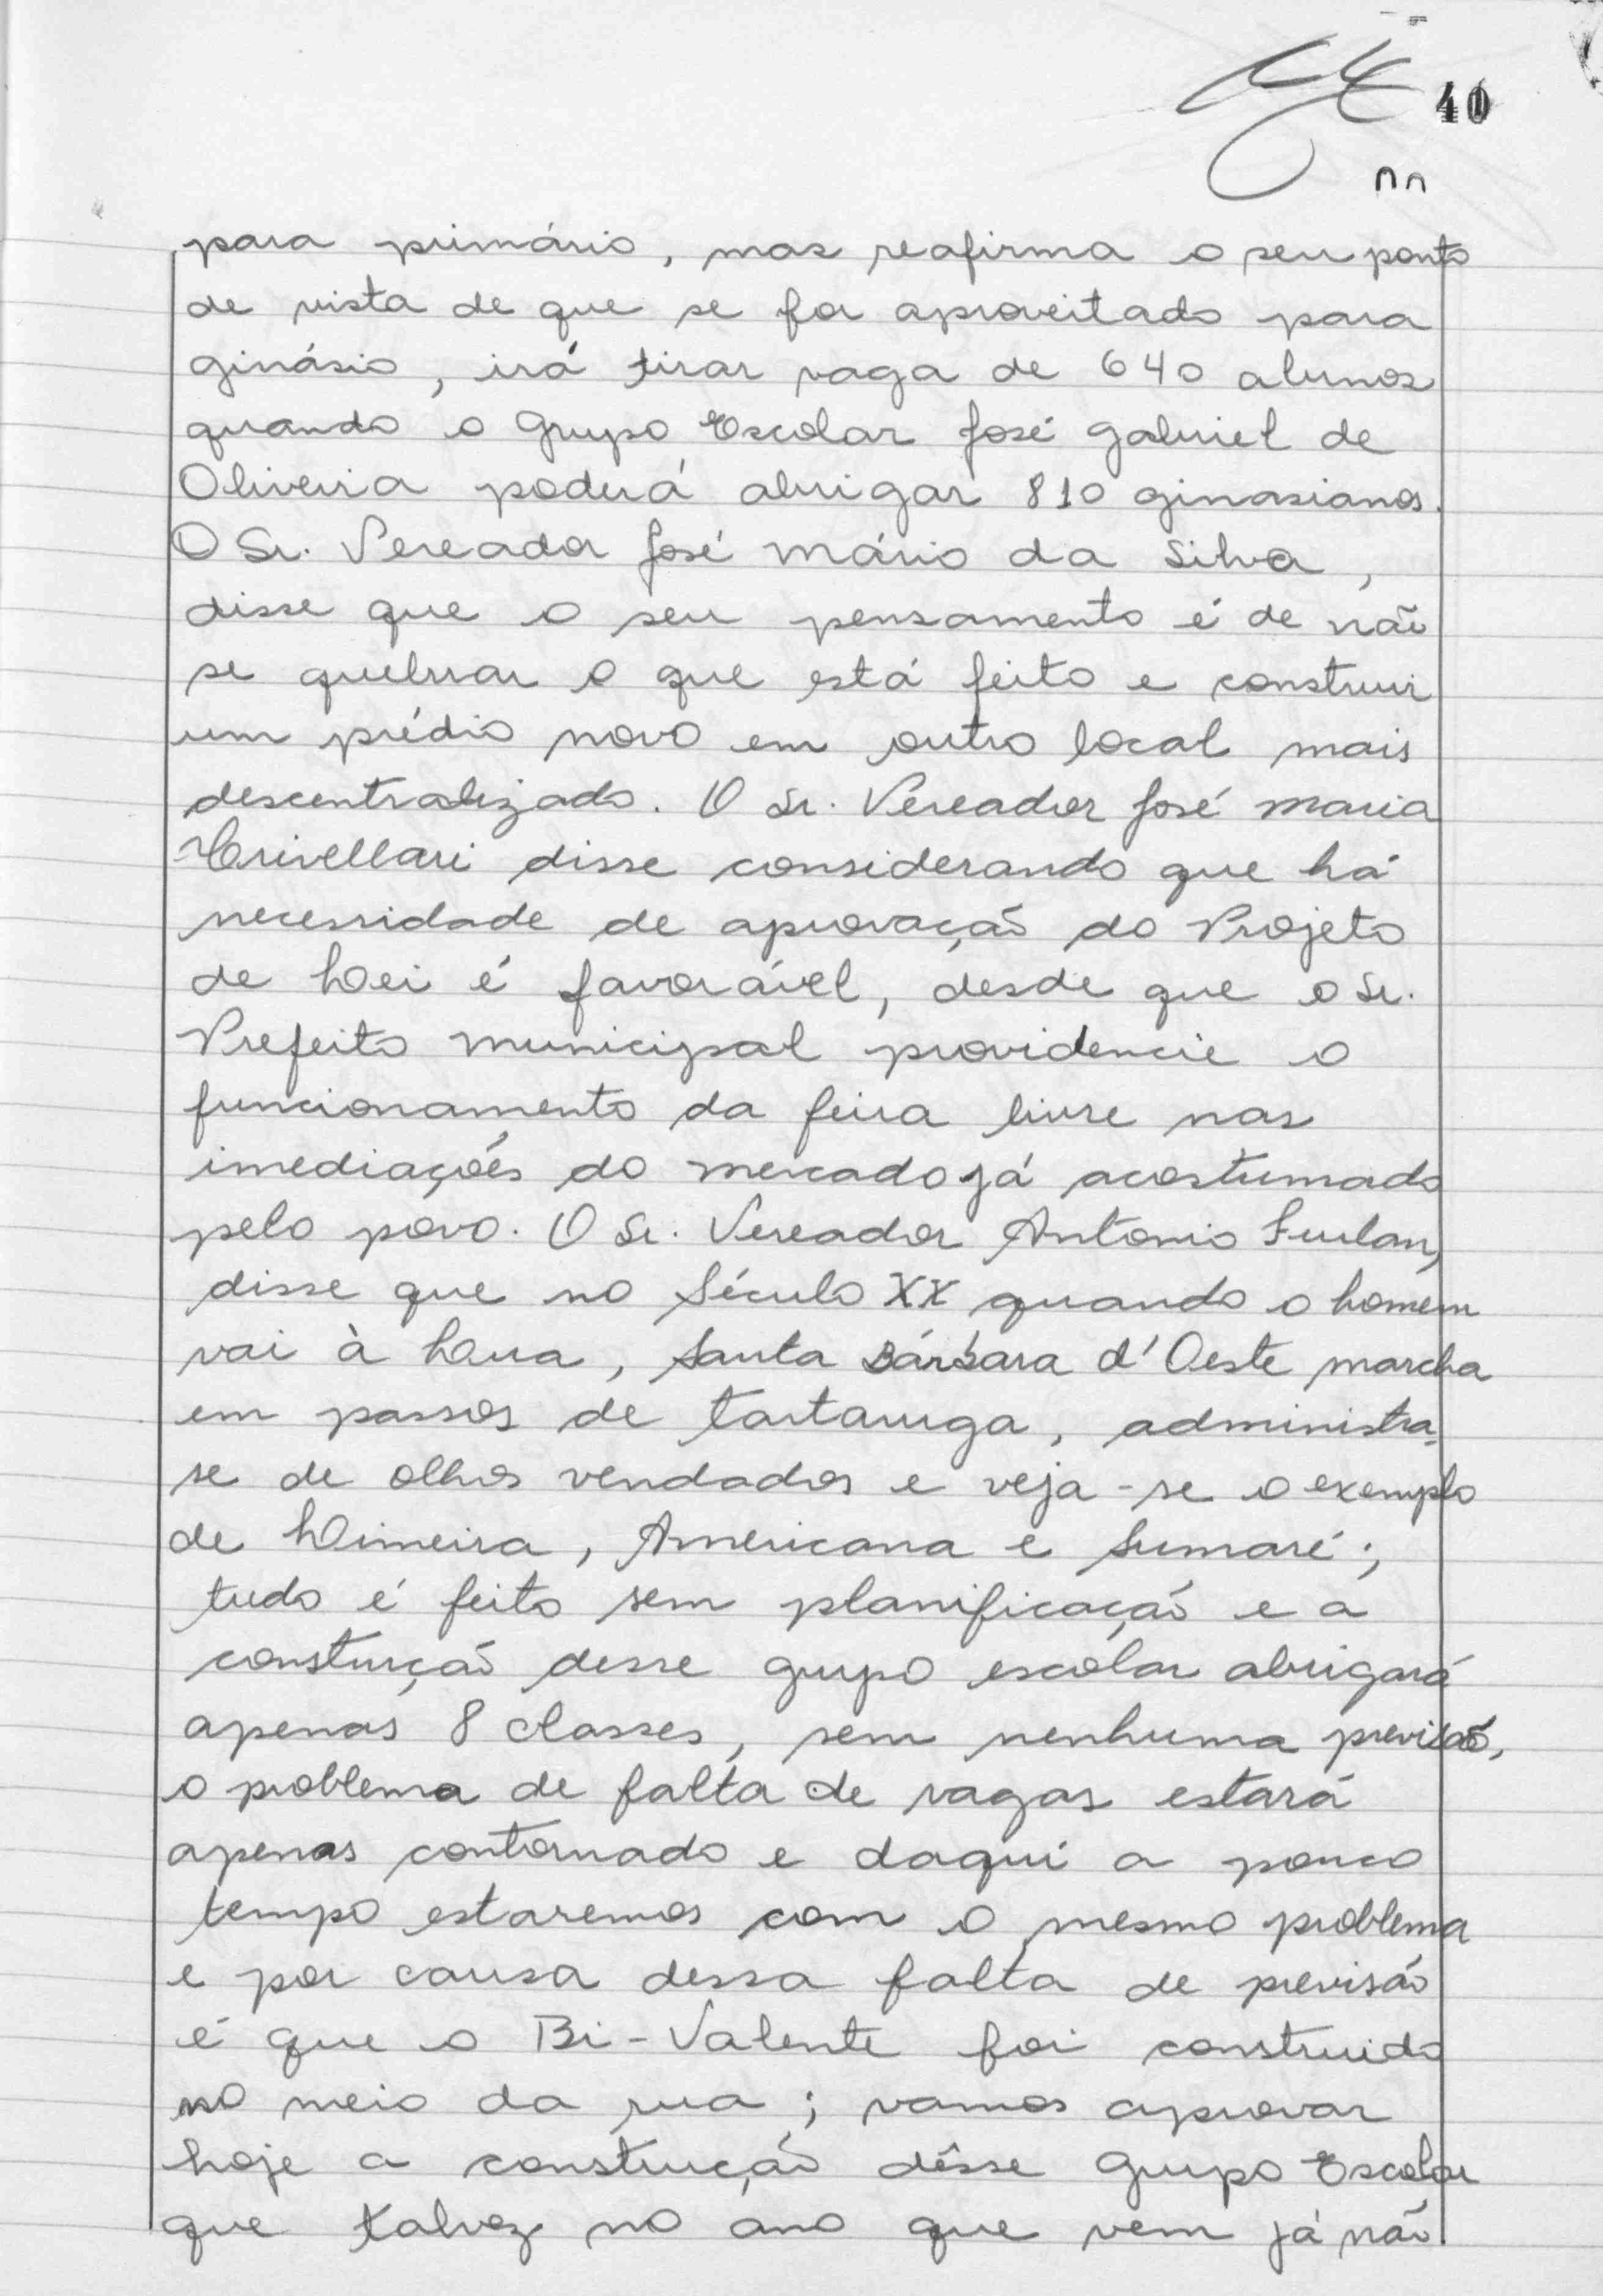 40
para primário, mas reafirma o seu ponto
de vista de que se for aproveitado para
ginásio, irá tirar vaga de 640 alunos
quando o Grupo Escolar José Gabriel de
Oliveira poderá abrigar 810 ginasianos.
O Sr. Vereador José Mário da Silva,
disse que o seu pensamento é de não
se quebrar o que está feito e construir
um prédio novo em outro local mais
descentralizado. O Sr. Vereador José Maria
Crivellari disse considerando que há
necessidade de aprovação do Projeto
de Lei é favorável, desde que o Sr.
Prefeito Municipal providencie o
funcionamento da feira livre nas
imediações do mercado já acostumado
pelo povo. O Sr. Vereador Antonio Furlan,
disse que no Século XX quando o homem
vai à Lua, Santa Bárbara d'Oeste marcha
em passos de tartaruga, administra-
se de olhos vendados e veja-se o exemplo
de Limeira, Americana e Sumaré;
tudo é feito sem planificação e a
construção desse grupo escolar abrigará
apenas 8 classes, sem nenhuma previsão,
o problema de falta de vagas estará
apenas contornado e daqui a pouco
tempo estaremos com o mesmo problema
e por causa dessa falta de previsão
é que o Bi-Valente foi construido
no meio da rua; vamos aprovar
hoje a construção dêsse Grupo Escolar
que talvez no ano que vem já não